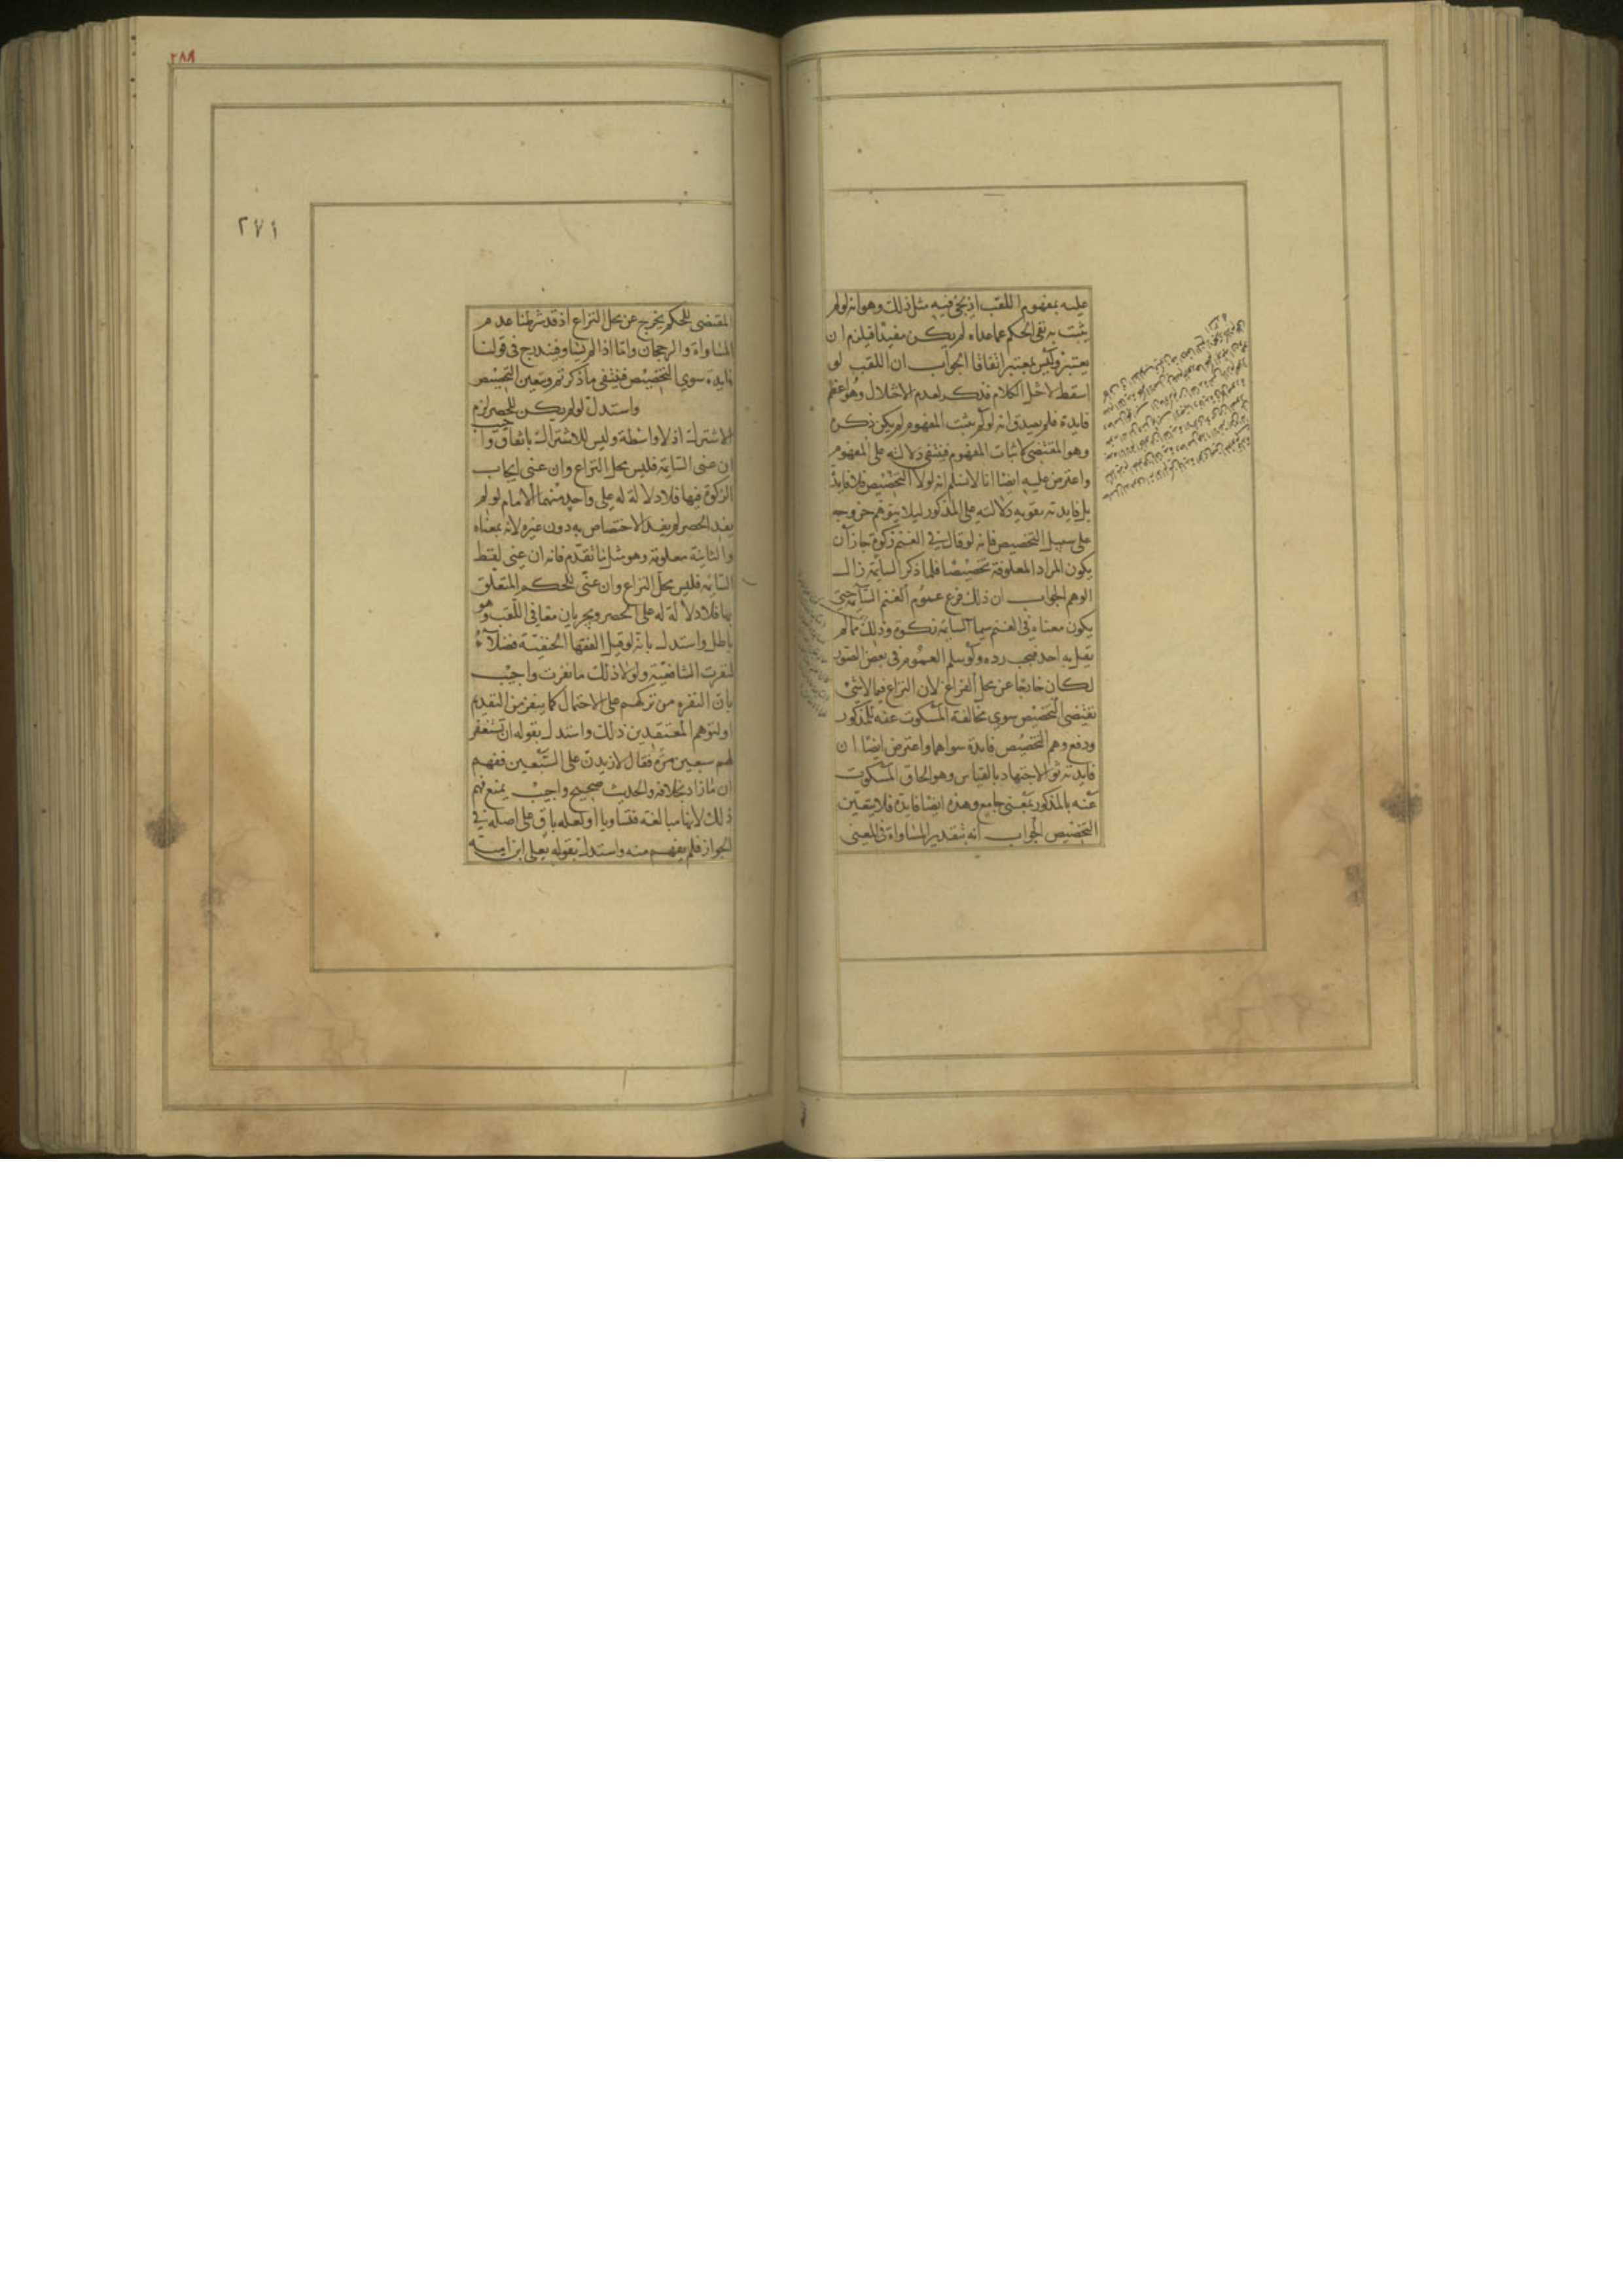 عليه بمفهوم اللقب اذ يجئ فيه مثل ذلك وهو انه لولم
يثبت به نفى الحكم عما عداه لم يكن مفيدا فيلزم ان
يعتبر وليس بمعتبر اتفاقا الجواب ان اللقب لو
اسقط لاختل الكلام فذكر لعدم الاختلال وهو اعظم
فايدة فلم يصدق انه لو لم يثبت المفهوم لم يكن ذكره
وهو المقتضى لاثبات المفهوم فينتفى دلالته على المفهوم
واعترض عليه ايضا انا لانسلم انه لولا التخصيص فلا فايدة
بل فايدته تقوية دلالته على المذكور ليلا يتوهم خروجه
على سبيل التخصيص فانه لو قال في الغنم زكوة جاز ان
يكون المراد المعلوفة تخصيصا فلما ذكر السايمة زال
الوهم الجواب ان ذلك فرع عموم الغنم السايمة حتى
يكون معناه فى الغنم سيما السايمة زكوة وذلك مما لم
يقل به احد فيجب رده ولو سلم العموم فى بعض الصور
لكان خارجا عن محل النزاع لان النزاع فيما لا شئ
يقتضى التخصيص سوى مخالفة المسكوت عنه للمذكور
ودفع وهم التخصيص فايدة سواهما واعترض ايضا ان
فايدته ثواب الاجتهاد بالقياس وهو الحاق المسكوت
عنه بالمذكور بمعنى جامع وهذه ايضا فايدة فلا يتعين
التخصيص الجواب انه بتقدير المساواة فى المعنى
٢٨٨
٢٧١
المقتضى للحكم يخرج عن محل النزاع اذ قد شرطنا عدم
المساواة والرجحان واما اذا لم يساو فيندرج فى قولنا
فايدة سوى التخصيص فينتفى ما ذكرتم ويتعين التخصيص
واستدل لو لم يكن للحصر لزم
الاشتراك اذ لا واسطة وليس للاشتراك باتفاق واجيب
ان عنى السايمة فليس محل النزاع وان عنى ايجاب
الزكوة فيها فلا دلالة له على واحد منهما الامام لو لم
يفد الحصر لم يفد الاختصاص به دون غيره لانه بمعناه
والثانية معلومة وهو مثل ما تقدم فانه ان عنى لفظ
السايمة فليس محل النزاع وان عنى الحكم المتعلق
بها فلا دلالة له على الحصر ويجريان معا فى اللقب وهو
باطل واستدل بانه لو قيل الفقها الحنفية فضلاء
لنفرت الشافعية ولولا ذلك ما نفرت واجيب
بان النفره من تركهم على الاحتمال كما ينفر من التقديم
او لتوهم المعتقدين ذلك واستدل بقوله ان تستغفر
لهم سبعين مرة فقال لازيدن على السبعين ففهم
ان ما زاد بخلافه والحديث صحيح واجيب بمنع فهم
ذلك لانها مبالغة فتساويا او لعله باق على اصله في
الجواز فلم يفهم منه واستدل بقوله يعلى ابن امية